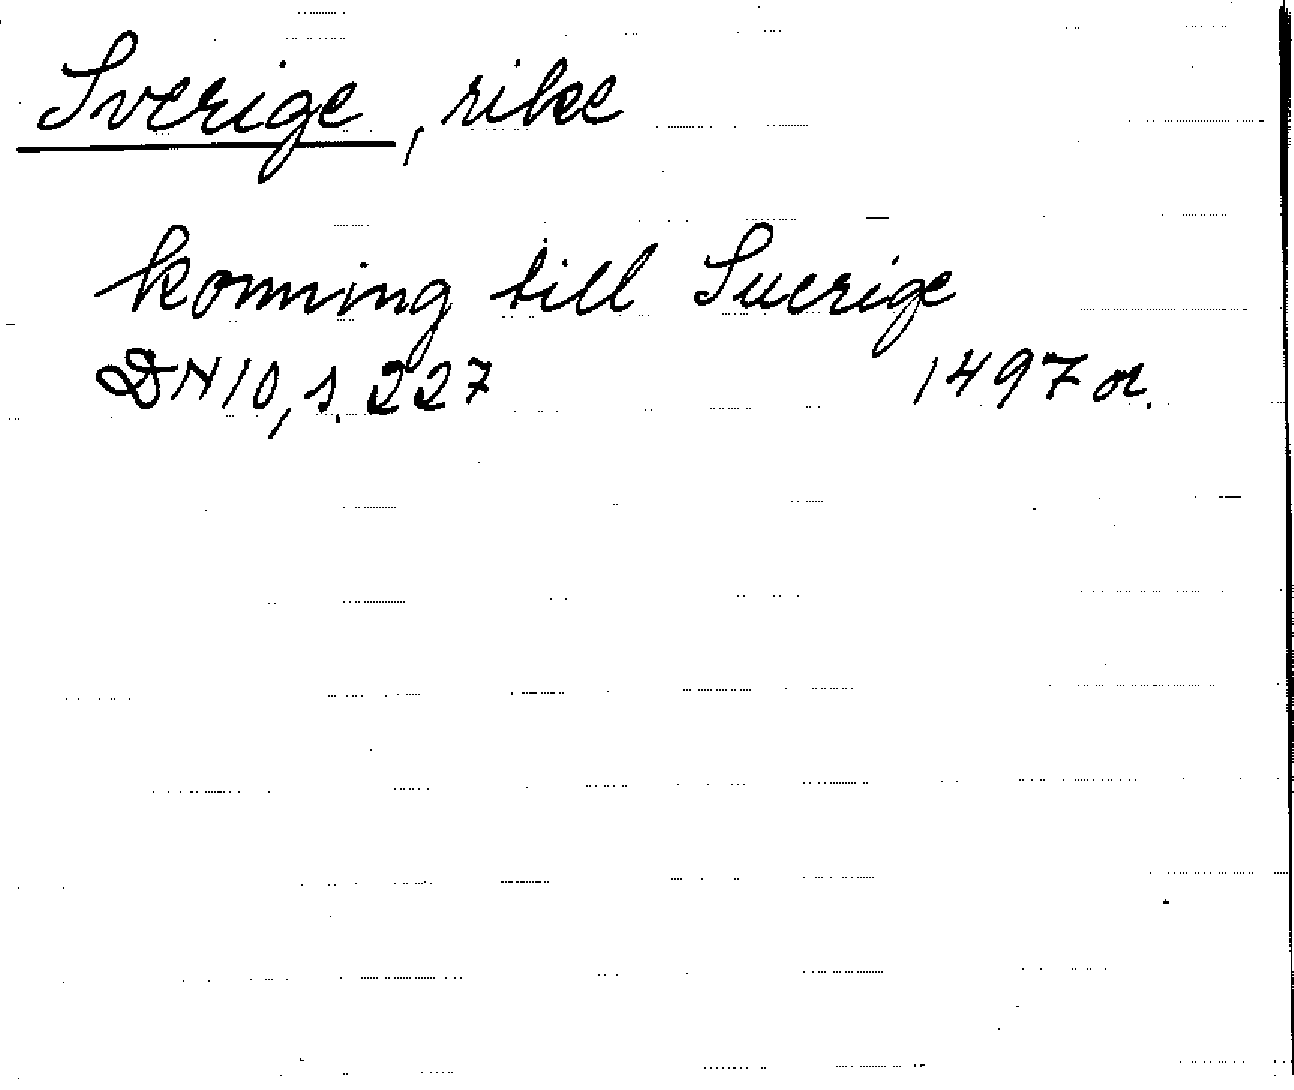 Sverige, rike
konning till Suerige
DN 10, s. 227 1497 or.